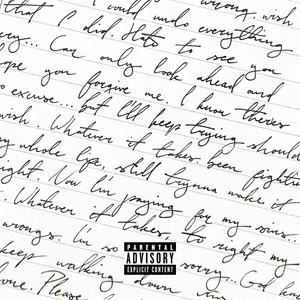 wrong. wish
I could undo everything
that I did. Hate to see you
cry... Can only look ahead and
hope you forgive me. I know there's
no excuse... but I'll keep trying should
wish. Whatever it takes. been fighting
my whole life. still tryna make it
right. Now I'm paying for my sins...
Whatever it takes to right my
wrongs. I'm so sorry. God
keep walking down
Please
PARENTAL
ADVISORY
EXPLICIT CONTENT